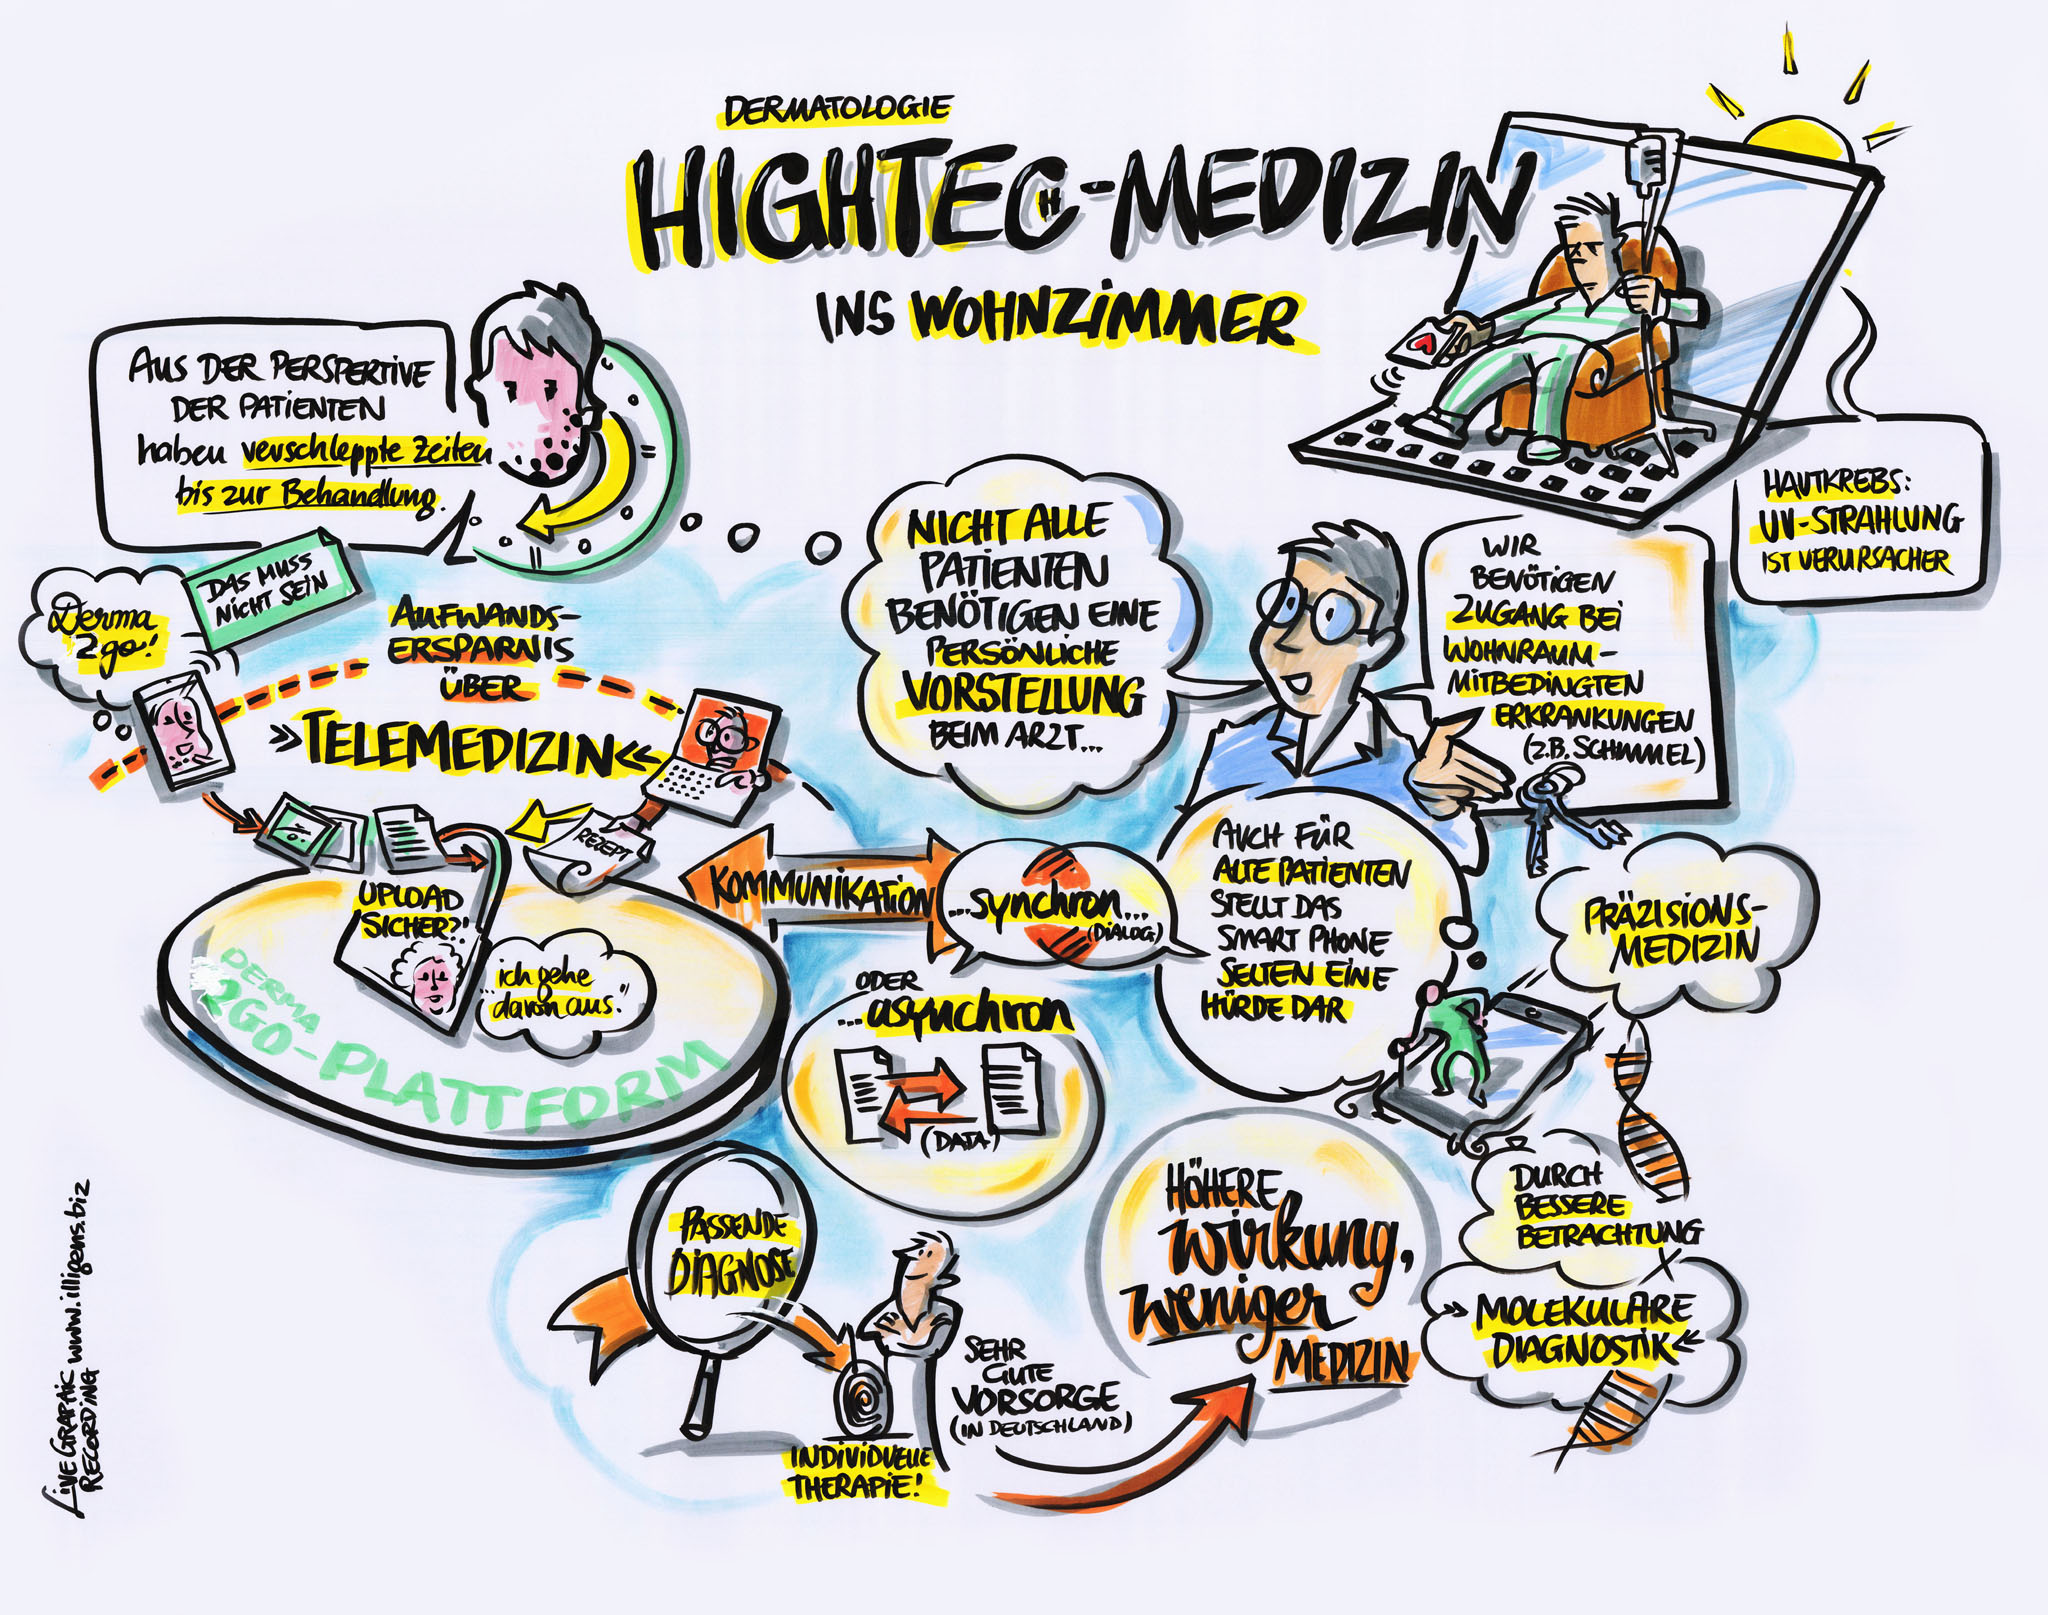 DERMATOLOGIE
HIGHTECH-MEDIZIN
INS WOHNZIMMER
AUS DER PERSPERTIVE
DER PATIENTEN
haben verschleppte Zeiten
bis zur Behandlung.
DAS MUSS
NICHT SEIN
Derma
2go!
AUFWANDS-
ERSPARNIS
ÜBER
»TELEMEDIZIN«
REZEPT
UPLOAD
SICHER?!
"ich gehe
davon aus."
DERMA
2GO-PLATTFORM
NICHT ALLE
PATIENTEN
BENÖTIGEN EINE
PERSÖNLICHE
VORSTELLUNG
BEIM ARZT...
WIR
BENÖTIGEN
ZUGANG BEI
WOHNRAUM-
MITBEDINGTEN
ERKRANKUNGEN
(Z.B. SCHIMMEL)
HAUTKREBS:
UV-STRAHLUNG
IST VERURSACHER
KOMMUNIKATION
...synchron...
(DIALOG)
ODER
...asynchron
(DATA)
AUCH FÜR
ALTE PATIENTEN
STELLT DAS
SMART PHONE
SELTEN EINE
HÜRDE DAR
PRÄZISIONS-
MEDIZIN
DURCH
BESSERE
BETRACHTUNG
»MOLEKULARE
DIAGNOSTIK«
PASSENDE
DIAGNOSE
INDIVIDUELLE
THERAPIE!
SEHR
GUTE
VORSORGE
(IN DEUTSCHLAND)
HÖHERE
wirkung,
weniger
MEDIZIN
LIVE GRAPHIC www.illigens.biz
RECORDING